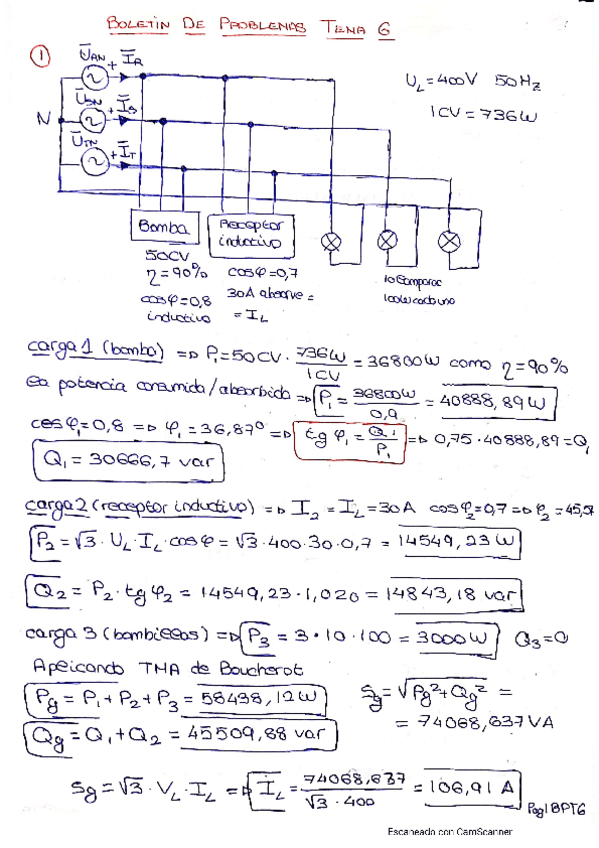 BOLETIN DE PROBLEMAS TEMA 6
1
U_AN + I_R
U_SN + I_S
U_TN + I_T
N
U_L = 400V 50Hz
1CV = 736W
Bomba
50CV
η = 90%
cosφ = 0,8
inductivo
Receptor
inductivo
cosφ = 0,7
30A absorve =
= I_L
10 lamparas
100W cada uno
carga 1 (bomba) => P₁ = 50CV · 736W / 1CV = 36800W como η = 90%
la potencia consumida/absorbida => P₁ = 36800W / 0,9 = 40888,89W
cosφ₁ = 0,8 => φ₁ = 36,87° => tgφ₁ = Q₁ / P₁ => 0,75 · 40888,89 = Q₁
Q₁ = 30666,7 var
carga 2 (receptor inductivo) => I₂ = I_L = 30A cosφ₂ = 0,7 => φ₂ = 45,5
P₂ = √3 · U_L · I_L · cosφ = √3 · 400 · 30 · 0,7 = 14549,23W
Q₂ = P₂ · tgφ₂ = 14549,23 · 1,020 = 14843,18 var
carga 3 (bombillas) => P₃ = 3 · 10 · 100 = 3000W Q₃ = 0
Aplicando TMA de Boucherot
Pg = P₁ + P₂ + P₃ = 58438,12W
Qg = Q₁ + Q₂ = 45509,88 var
Sg = √Pg² + Qg² =
= 74068,637VA
Sg = √3 · V_L · I_L => I_L = 74068,637 / √3 · 400 = 106,91 A
Pag1BPT6
Escaneado con CamScanner